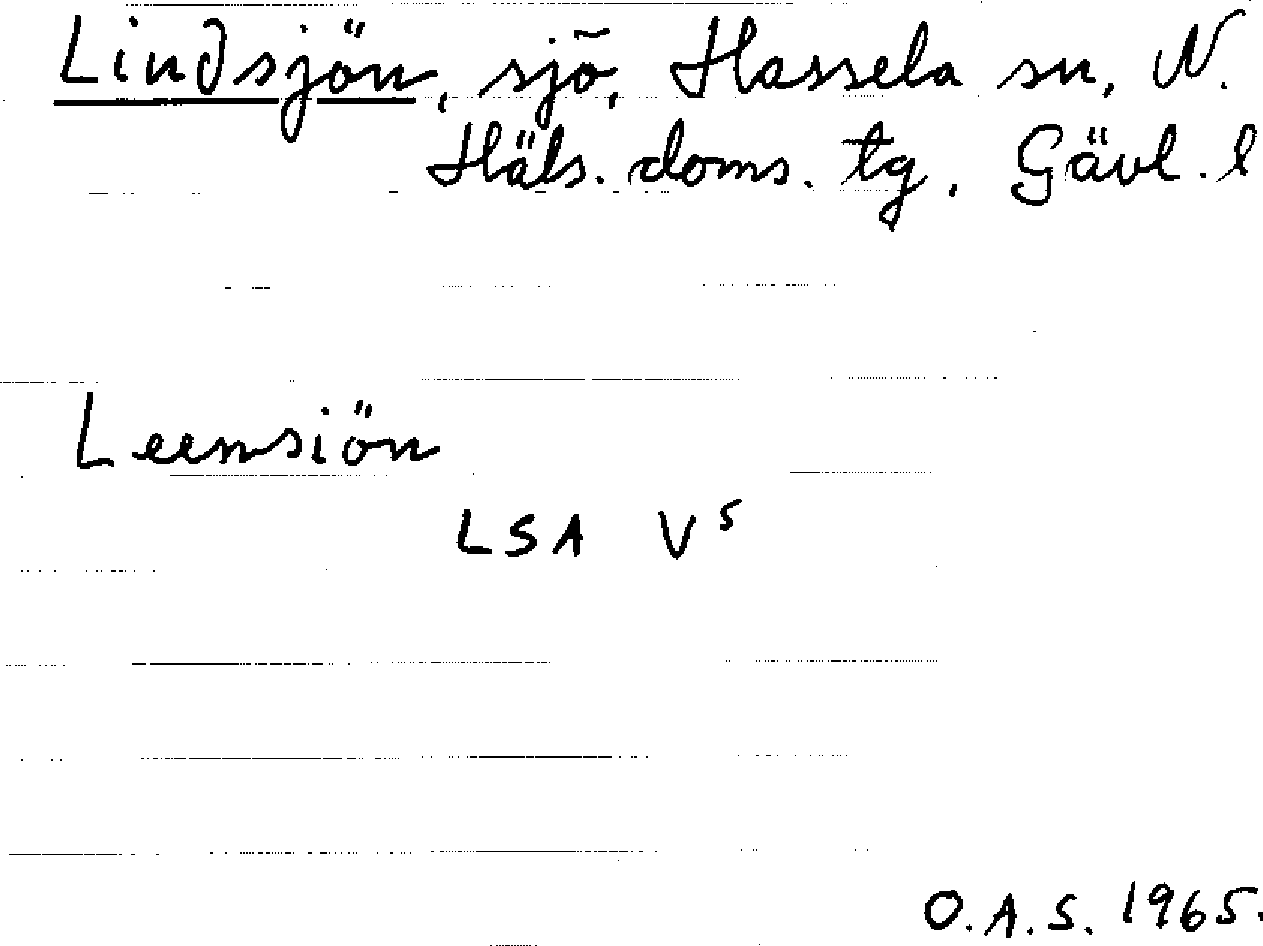 Lindsjön, sjö, Hassela sn, N.
Häls. doms. tg. Gävl. l
Leensiön
LSA V⁵
O.A.S. 1965.